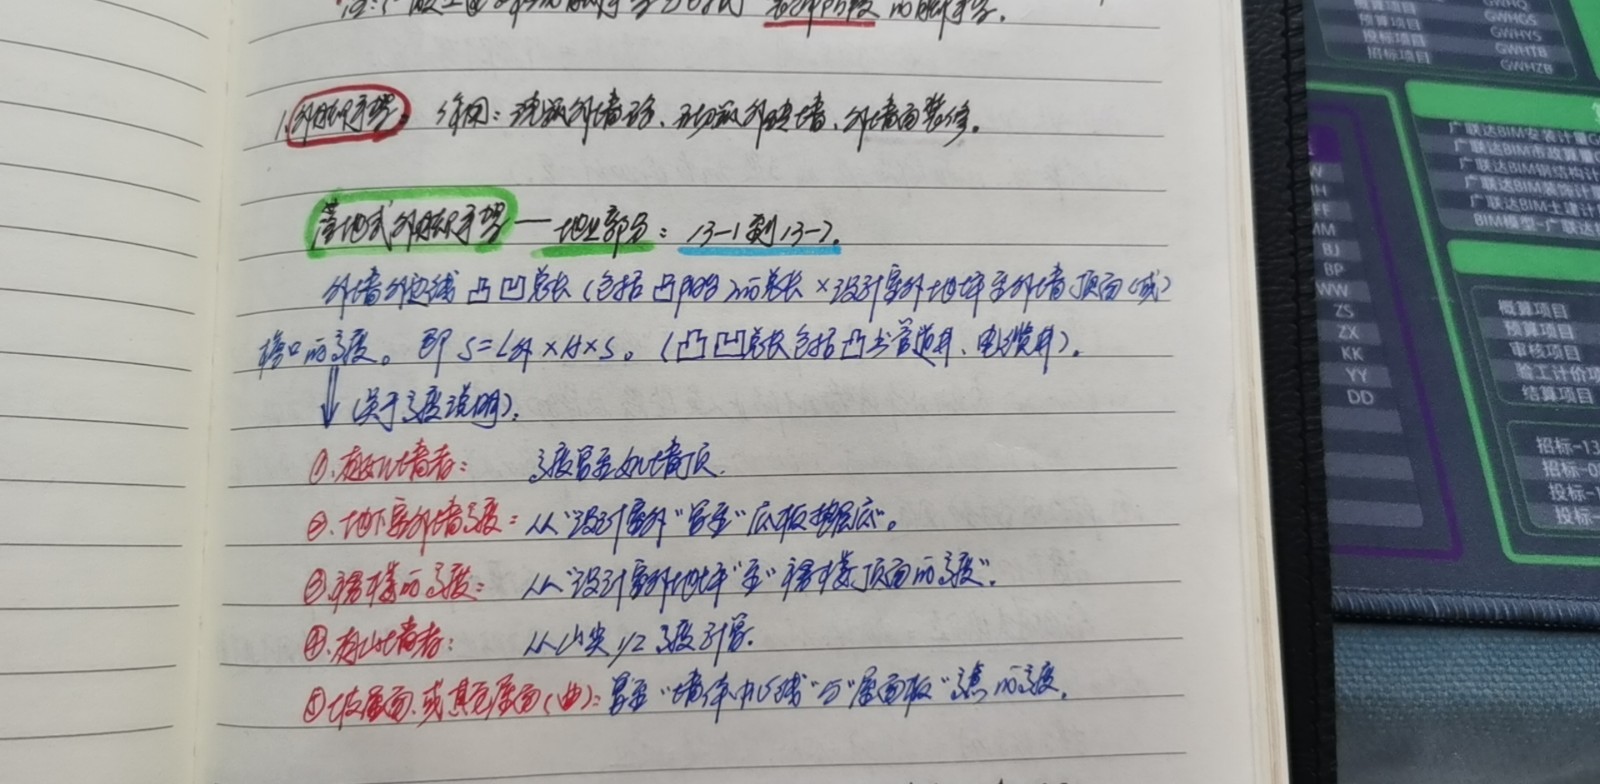 1.外脚手架: 作用:浇砼外墙砼、砌外砖墙、外墙面装修。
落地式外脚手架——地上部分:13-1到13-7。
外墙外边线凸凹总长(包括凸阳台)的总长×设计室外地坪至外墙顶面(或)
檐口的高度。即S=L外×H×S。(凸凹总长包括凸出管道井、电缆井)。
(关于高度说明)。
①.有女儿墙者: 高度算至女儿墙顶.
②.地下室外墙高度: 从"设计室外"算至"底板垫层底"。
③.楼梯的高度: 从"设计室外地坪"至"楼梯顶面的高度".
④.有山墙者: 从山尖1/2高度计算.
⑤.坡屋面.或其它屋面(曲): 算至"墙体中心线"与"屋面板"交点的高度.
概算项目
预算项目 GWHGS
投标项目 GWHYS
招标项目 GWHTB
GWHZB
广联达BIM安装计量G
广联达BIM市政算量G
广联达BIM钢结构计
广联达BIM装饰计量
广联达BIM土建计
BIM模型-广联达
BJ
BP
WW
ZS
ZX
KK
YY
DD
概算项目
预算项目
审核项目
验工计价项
结算项目
招标-13
招标-0
投标-1
投标-